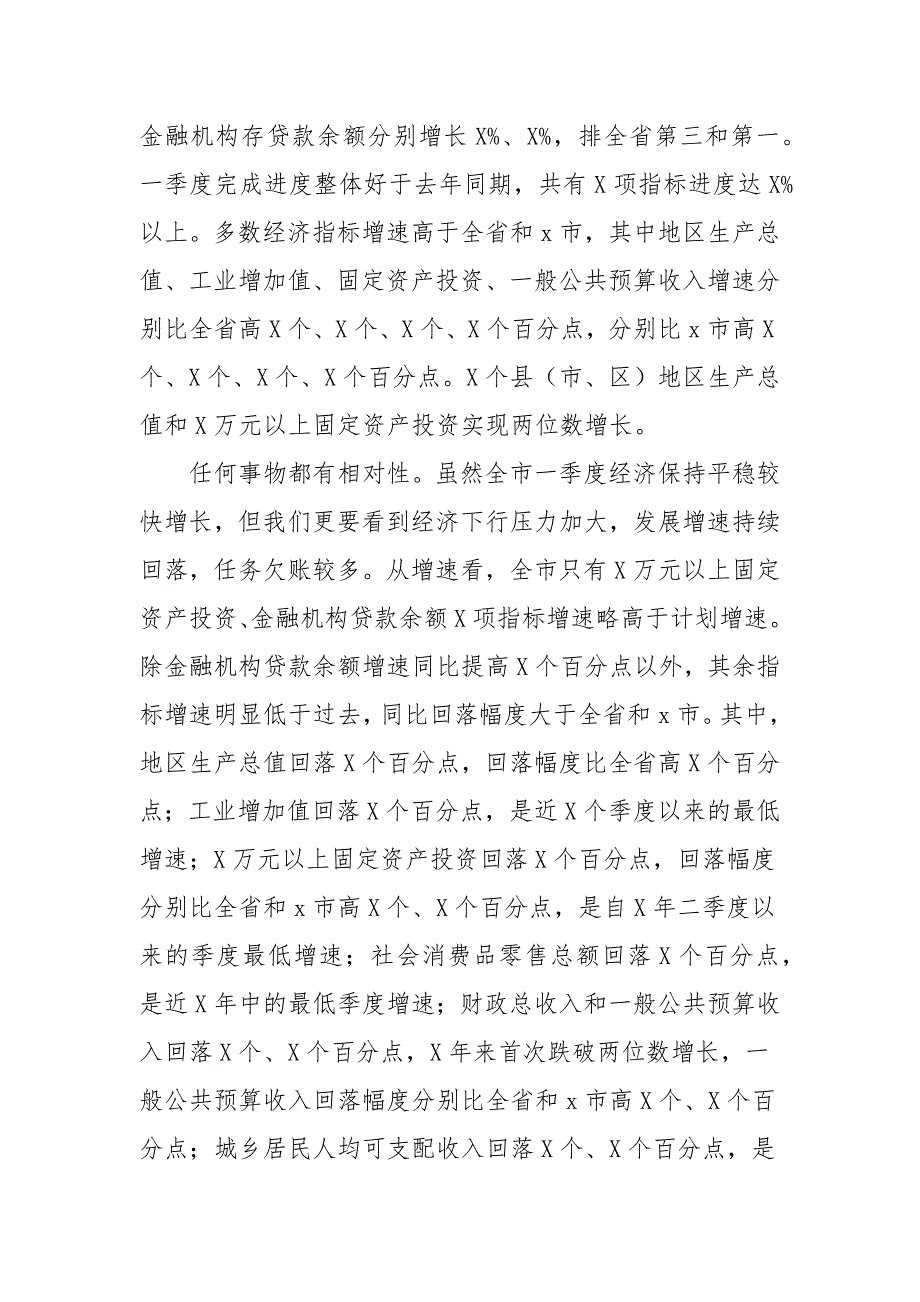 金融机构存贷款余额分别增长 X%、X%，排全省第三和第一。
一季度完成进度整体好于去年同期，共有 X 项指标进度达 X%
以上。多数经济指标增速高于全省和 x 市，其中地区生产总
值、工业增加值、固定资产投资、一般公共预算收入增速分
别比全省高 X 个、X 个、X 个、X 个百分点，分别比 x 市高 X
个、X 个、X 个、X 个百分点。X 个县（市、区）地区生产总
值和 X 万元以上固定资产投资实现两位数增长。
任何事物都有相对性。虽然全市一季度经济保持平稳较
快增长，但我们更要看到经济下行压力加大，发展增速持续
回落，任务欠账较多。从增速看，全市只有 X 万元以上固定
资产投资、金融机构贷款余额 X 项指标增速略高于计划增速。
除金融机构贷款余额增速同比提高 X 个百分点以外，其余指
标增速明显低于过去，同比回落幅度大于全省和 x 市。其中，
地区生产总值回落 X 个百分点，回落幅度比全省高 X 个百分
点；工业增加值回落 X 个百分点，是近 X 个季度以来的最低
增速；X 万元以上固定资产投资回落 X 个百分点，回落幅度
分别比全省和 x 市高 X 个、X 个百分点，是自 X 年二季度以
来的季度最低增速；社会消费品零售总额回落 X 个百分点，
是近 X 年中的最低季度增速；财政总收入和一般公共预算收
入回落 X 个、X 个百分点，X 年来首次跌破两位数增长，一
般公共预算收入回落幅度分别比全省和 x 市高 X 个、X 个百
分点；城乡居民人均可支配收入回落 X 个、X 个百分点，是